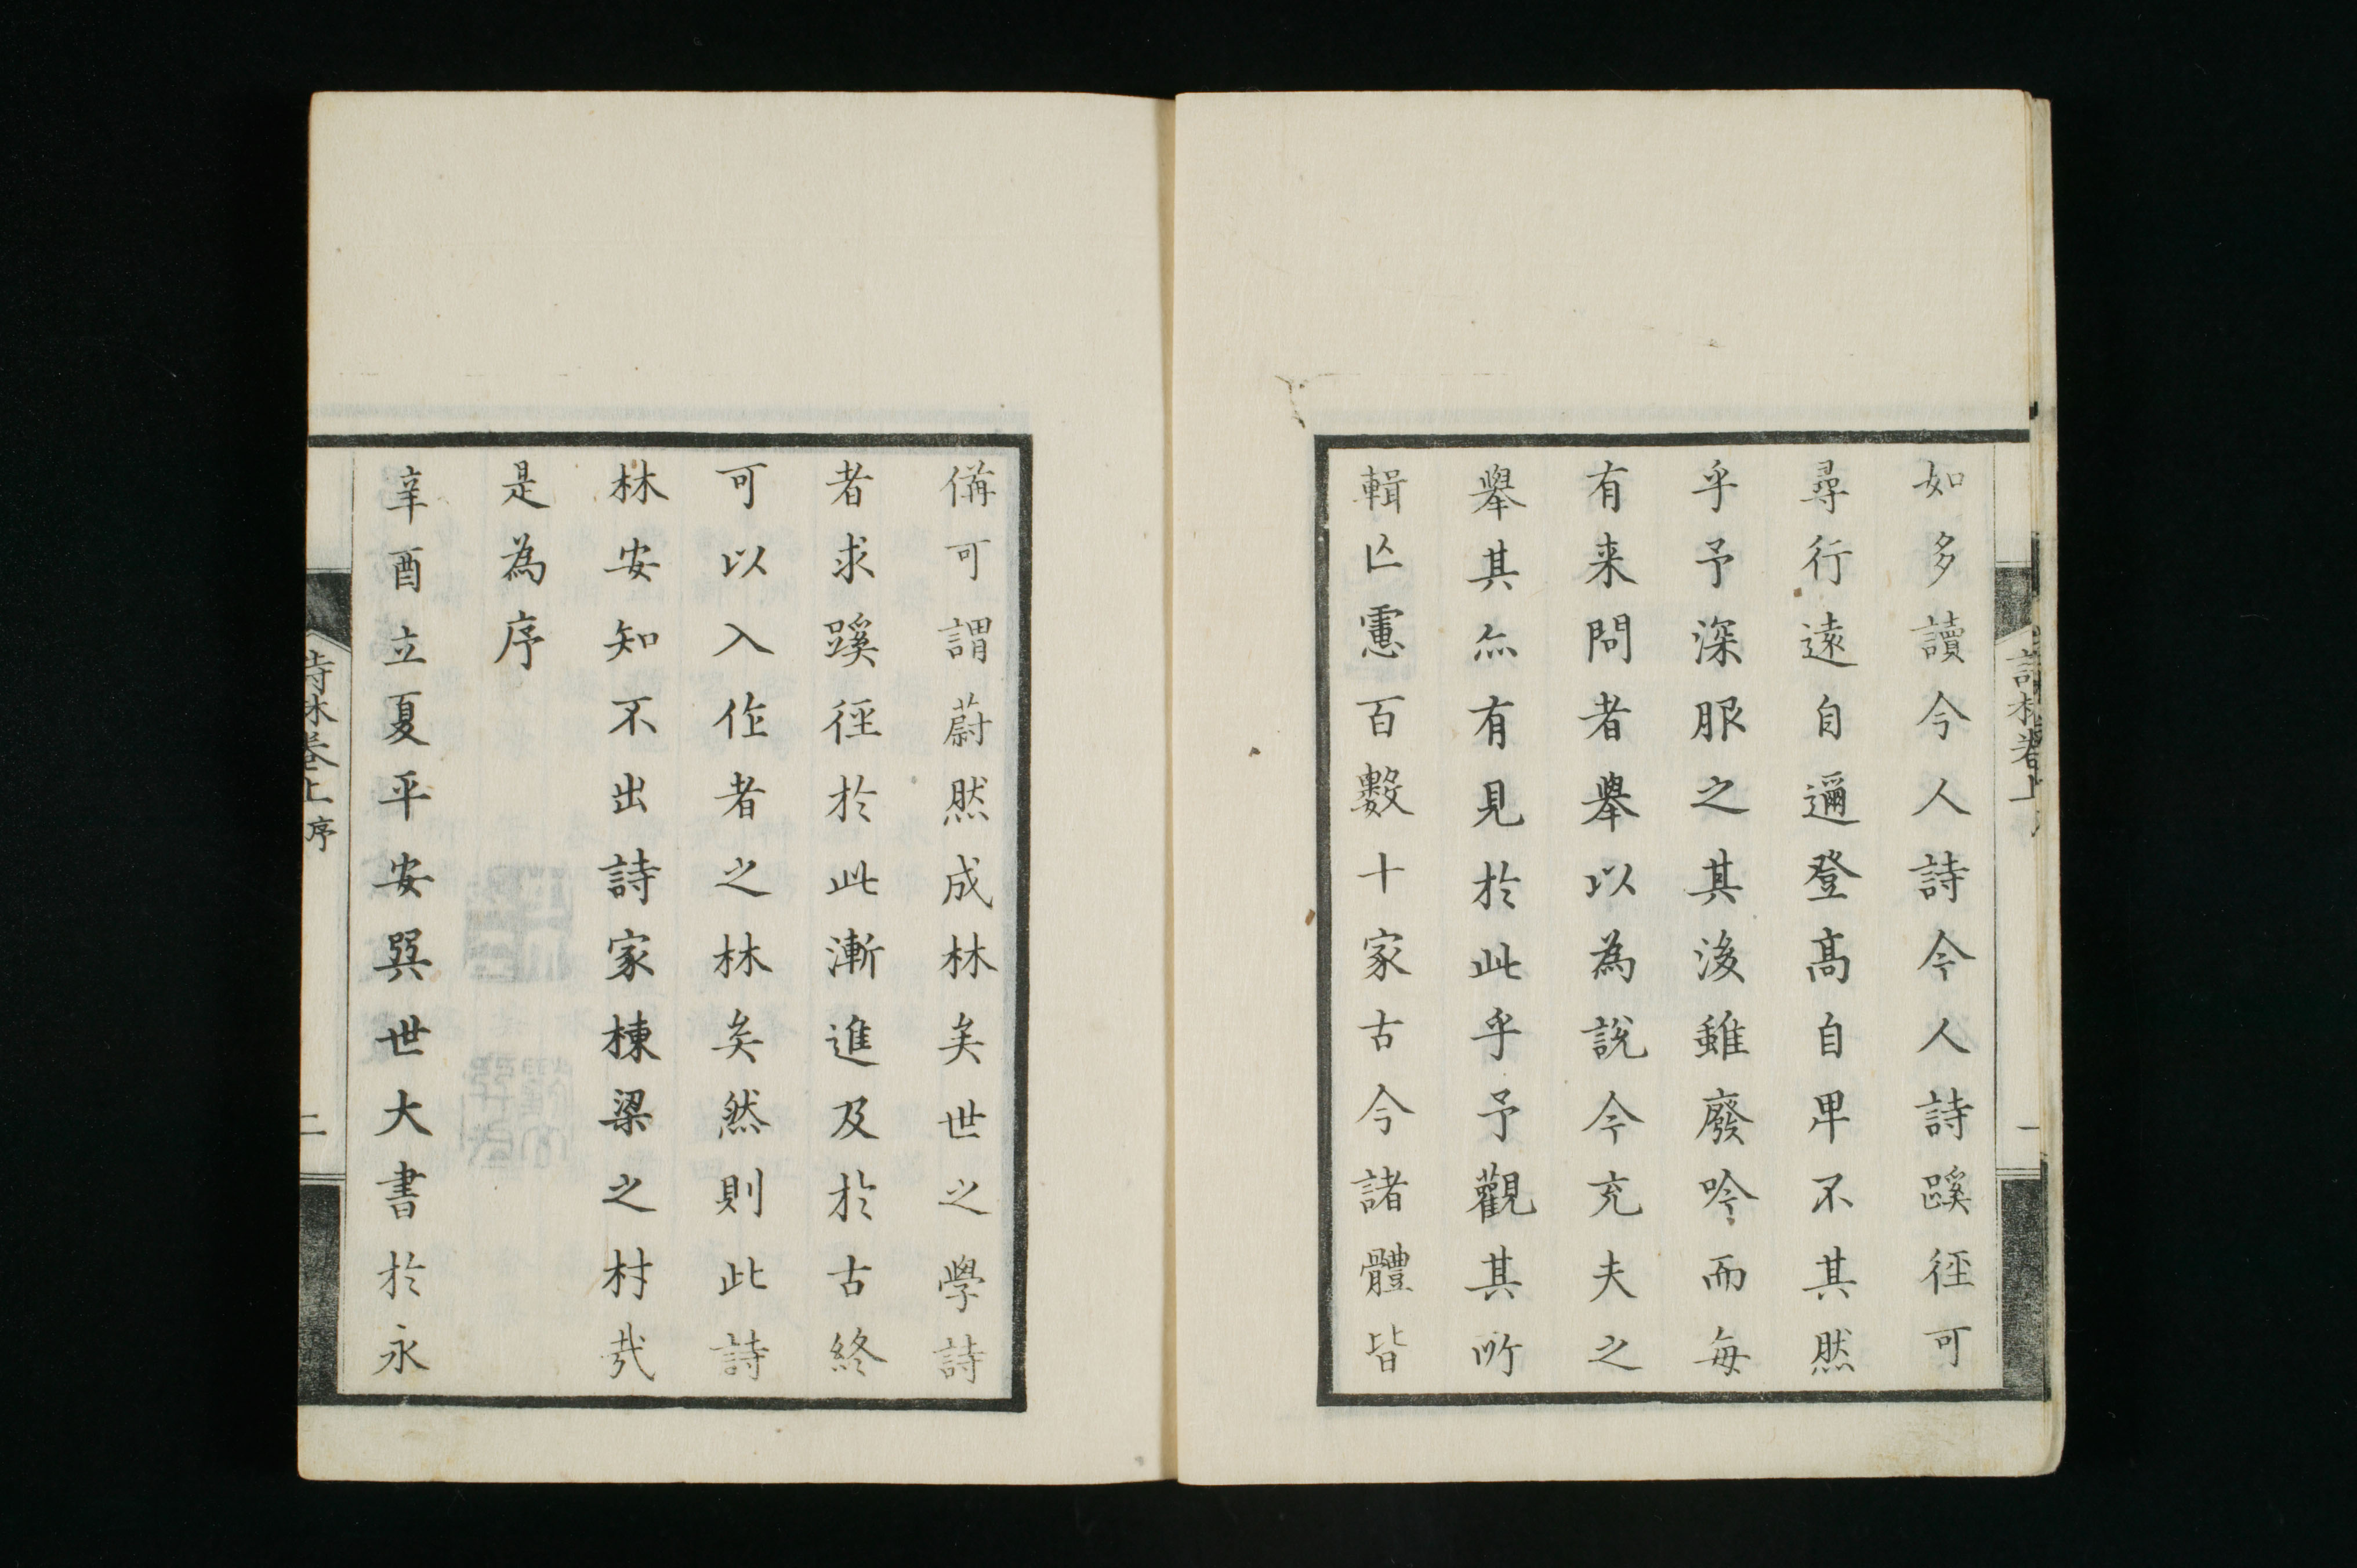 如多讀今人詩今人詩蹊徑可
尋行遠自邇登髙自卑不其然
乎予深服之其後雖廢吟而每
有来問者舉以為說今充夫之
舉其亦有見於此乎予觀其所
輯亡慮百數十家古今諸體皆
備可謂蔚然成林矣世之學詩
者求蹊徑於此漸進及於古終
可以入作者之林矣然則此詩
林安知不出詩家棟梁之材哉
是為序
辛酉立夏平安巽世大書於永
詩林卷上
一
詩林卷上序
二